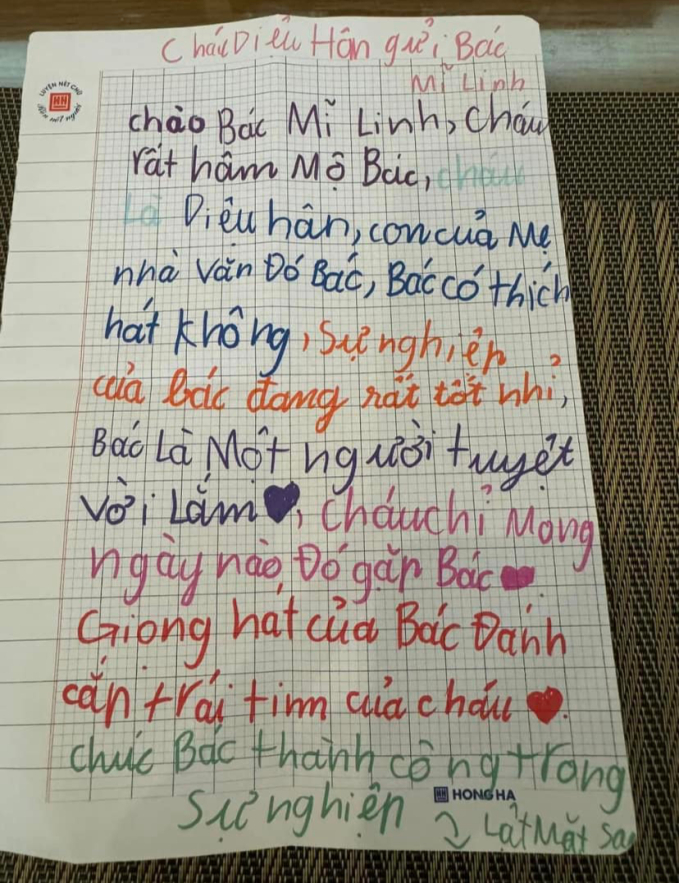 Cháu Diệu Hân gửi Bác
Mĩ Linh
LUYỆN NÉT CHỮ
HH
Rèn nết người
chào Bác Mĩ Linh, cháu
rất hâm Mộ Bác, cháu
Là Diệu hân, con của Mẹ
nhà văn Đó Bác, Bác có thích
hát không, sự nghiệp
của bác đang rất tốt nhỉ,
Bác Là Một người tuyệt
vời Lắm, cháu chỉ Mong
ngày nào Đó gặp Bác
Giọng hát của Bác Đánh
cắp trái tim của cháu.
chúc Bác thành công trong
sự nghiệp
HH HONG HA
Lật Mặt Sa